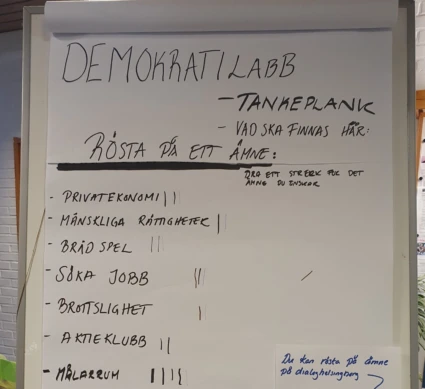 DEMOKRATILABB
- TANKEPLANK
- VAD SKA FINNAS HÄR:
RÖSTA PÅ ETT ÄMNE:
DRA ETT STRECK FÖR DET
ÄMNE DU ÖNSKAR
- PRIVATEKONOMI
- MÄNSKLIGA RÄTTIGHETER
- BRÄDSPEL
- SÖKA JOBB
- BROTTSLIGHET
- AKTIEKLUBB
- MÅLARRUM
Du kan rösta på ämne
på dialoghelsingborg